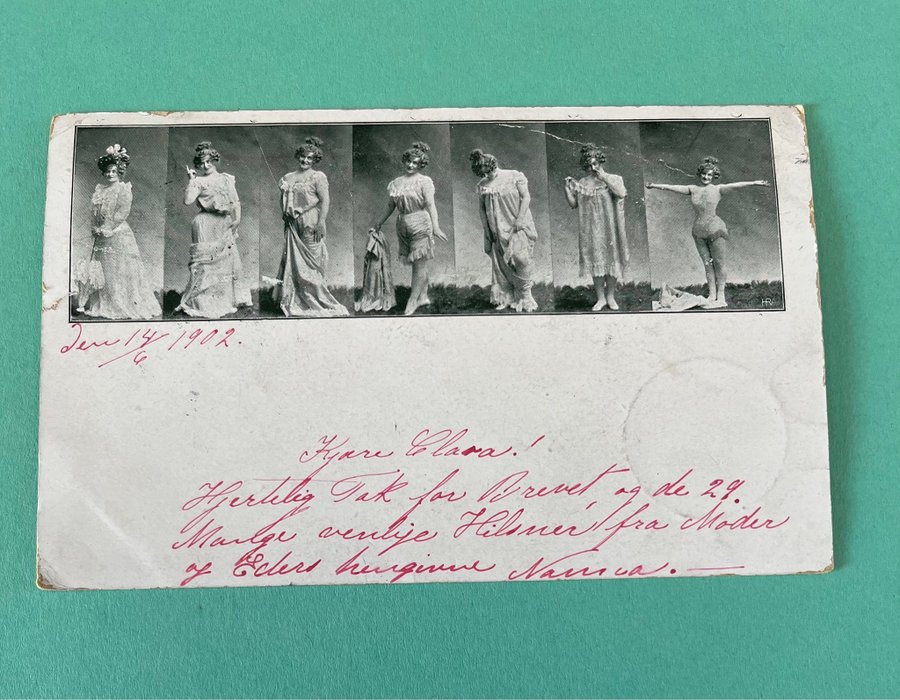 HR
Den 14/6 1902.
Kjære Clara!
Hjertelig Tak for Brevet, og de 29.
Mange venlige Hilsner fra Moder
og Eders hengivne